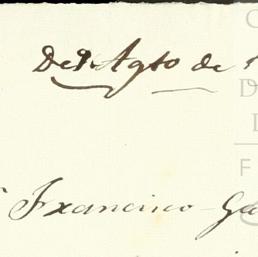 De 9. Agto de
Francisco Ga